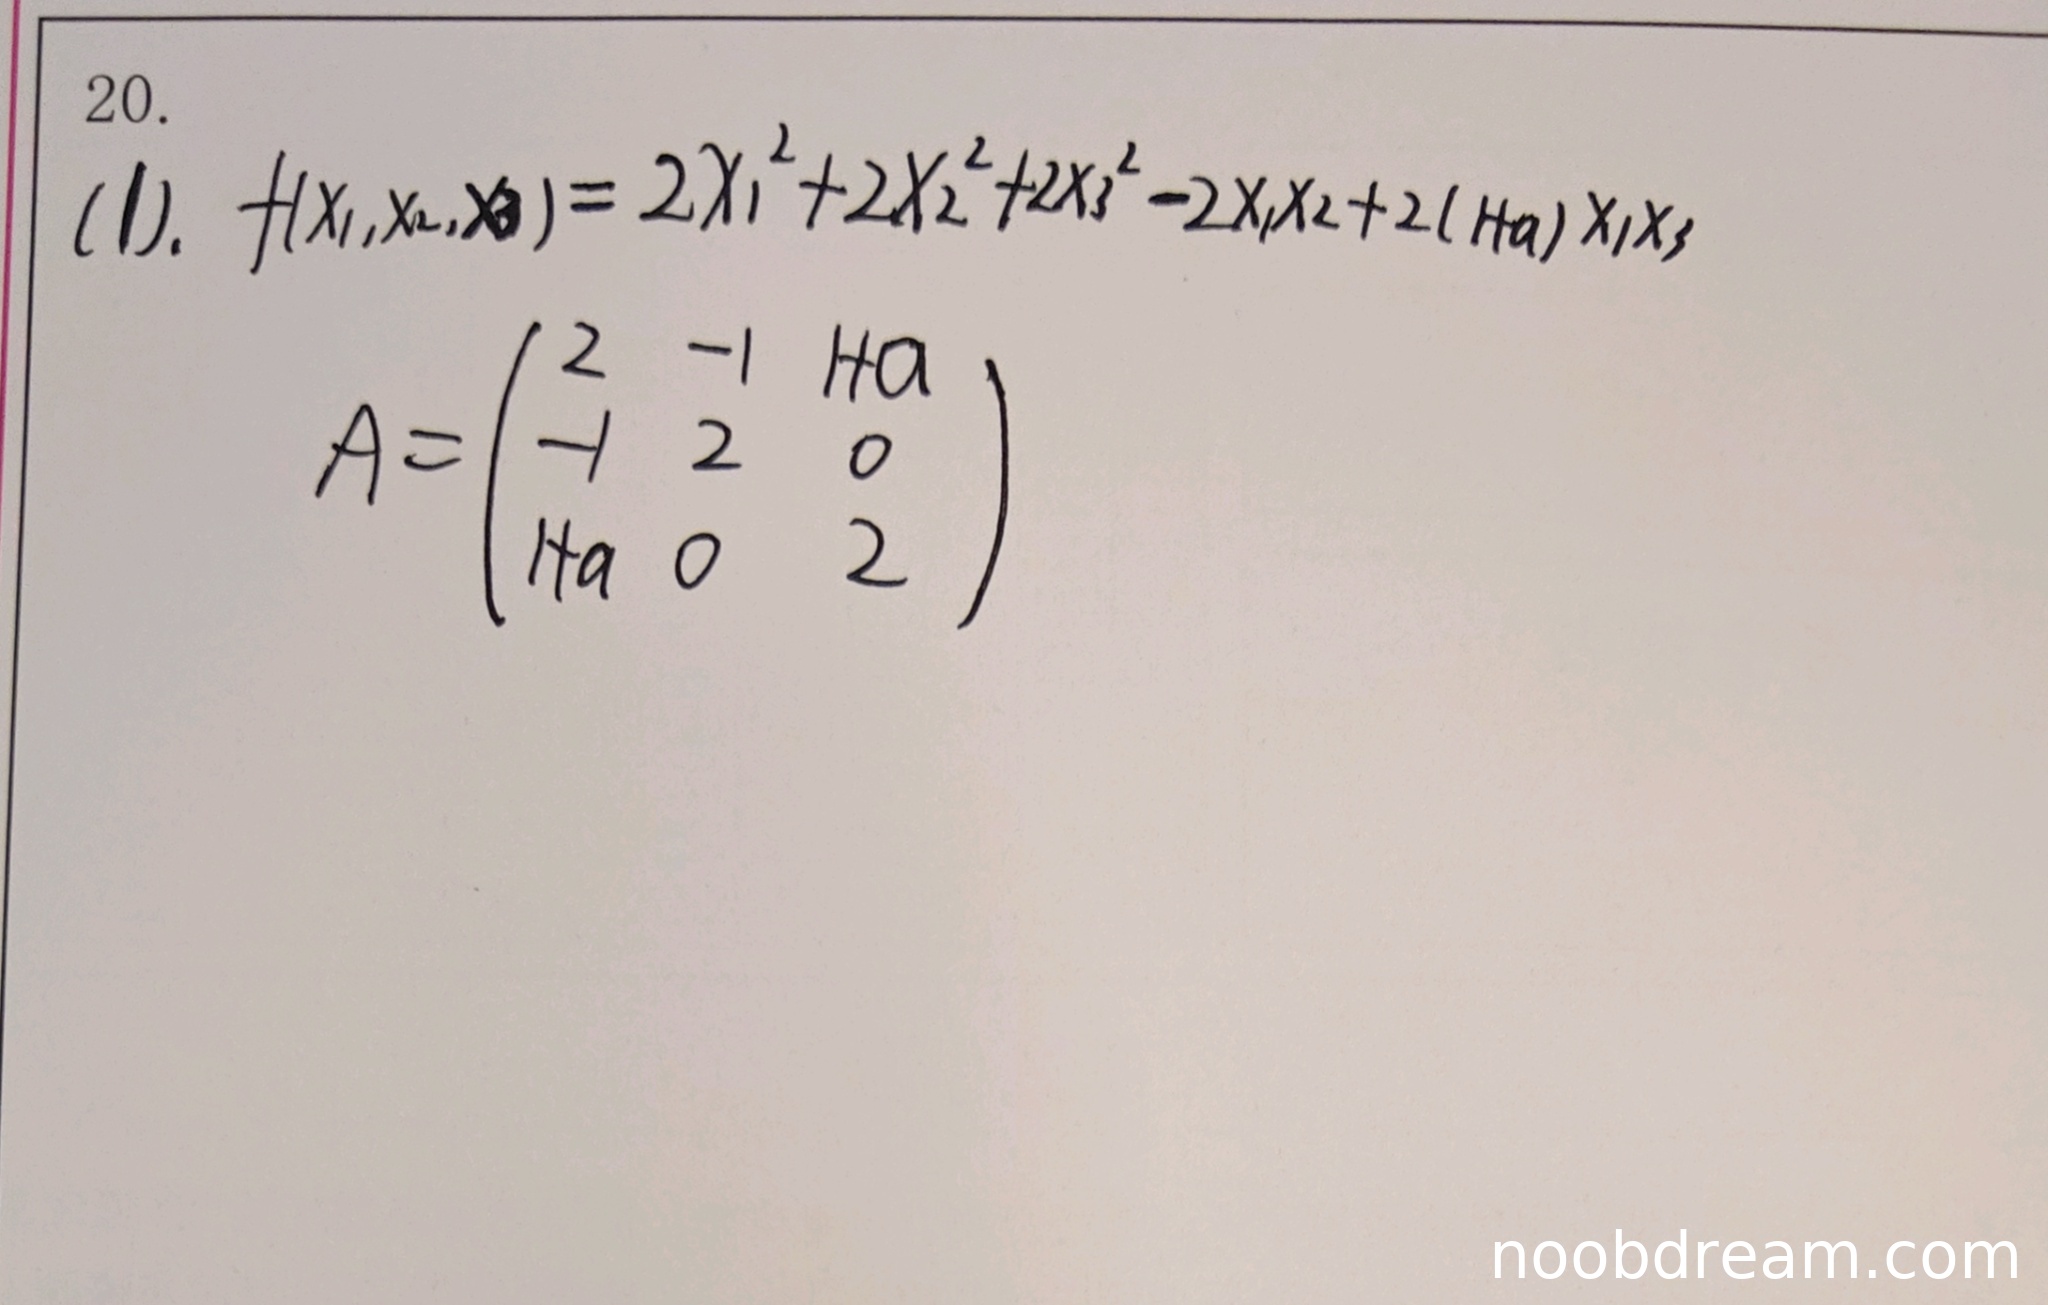 20.
(1). f(x₁,x₂,x₃)=2x₁²+2x₂²+2x₃²-2x₁x₂+2(1+a)x₁x₃
A=(2 -1 1+a
-1 2 0
1+a 0 2)
noobdream.com